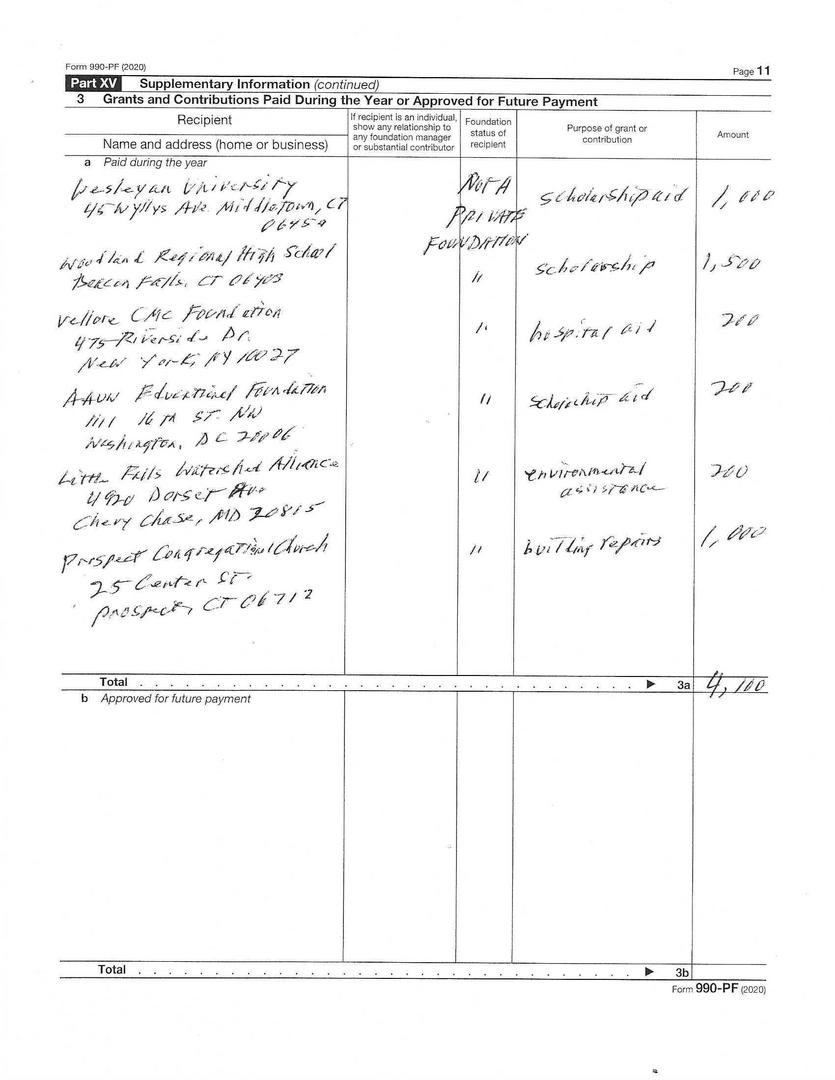 Form 990-PF (2020)
Page 11
Part XV Supplementary Information (continued)
3 Grants and Contributions Paid During the Year or Approved for Future Payment
Recipient
Name and address (home or business)
If recipient is an individual,
show any relationship to
any foundation manager
or substantial contributor
Foundation
status of
recipient
Purpose of grant or
contribution
Amount
a Paid during the year
Wesleyan University
45 Wyllys Ave. Middletown, CT
06459
NOT A
PRIVATE
FOUNDATION
scholarship aid
1,000
Woodland Regional High School
Beacon Falls, CT 06403
"
scholarship
1,500
Vellore CMC Foundation
475 Riverside Dr.
New York, NY 10027
"
hospital aid
200
AAUW Educational Foundation
1111 16TH ST. NW
Washington, DC 20006
"
scholarship aid
200
Little Falls Watershed Alliance
4920 Dorset Ave
Chevy Chase, MD 20815
"
environmental
assistance
200
Prospect Congregational Church
25 Center ST.
Prospect, CT 06712
"
building repairs
1,000
Total . . . . . . . . . . . . . . . . . . . . . . . . . . . . . . ▶ 3a 4,100
b Approved for future payment
Total . . . . . . . . . . . . . . . . . . . . . . . . . . . . . . ▶ 3b
Form 990-PF (2020)